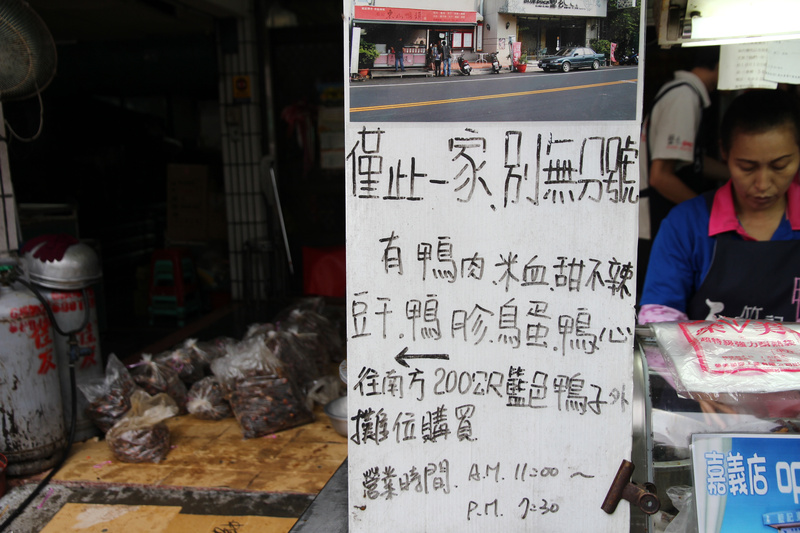 僅此一家、別無分號
有鴨肉.米血.甜不辣
豆干.鴨胗.鳥蛋.鴨心
←
往南方200公尺籃色鴨子外
攤位購買
營業時間. A.M. 11:00 ~
P.M. 7:30
嘉義店 OP